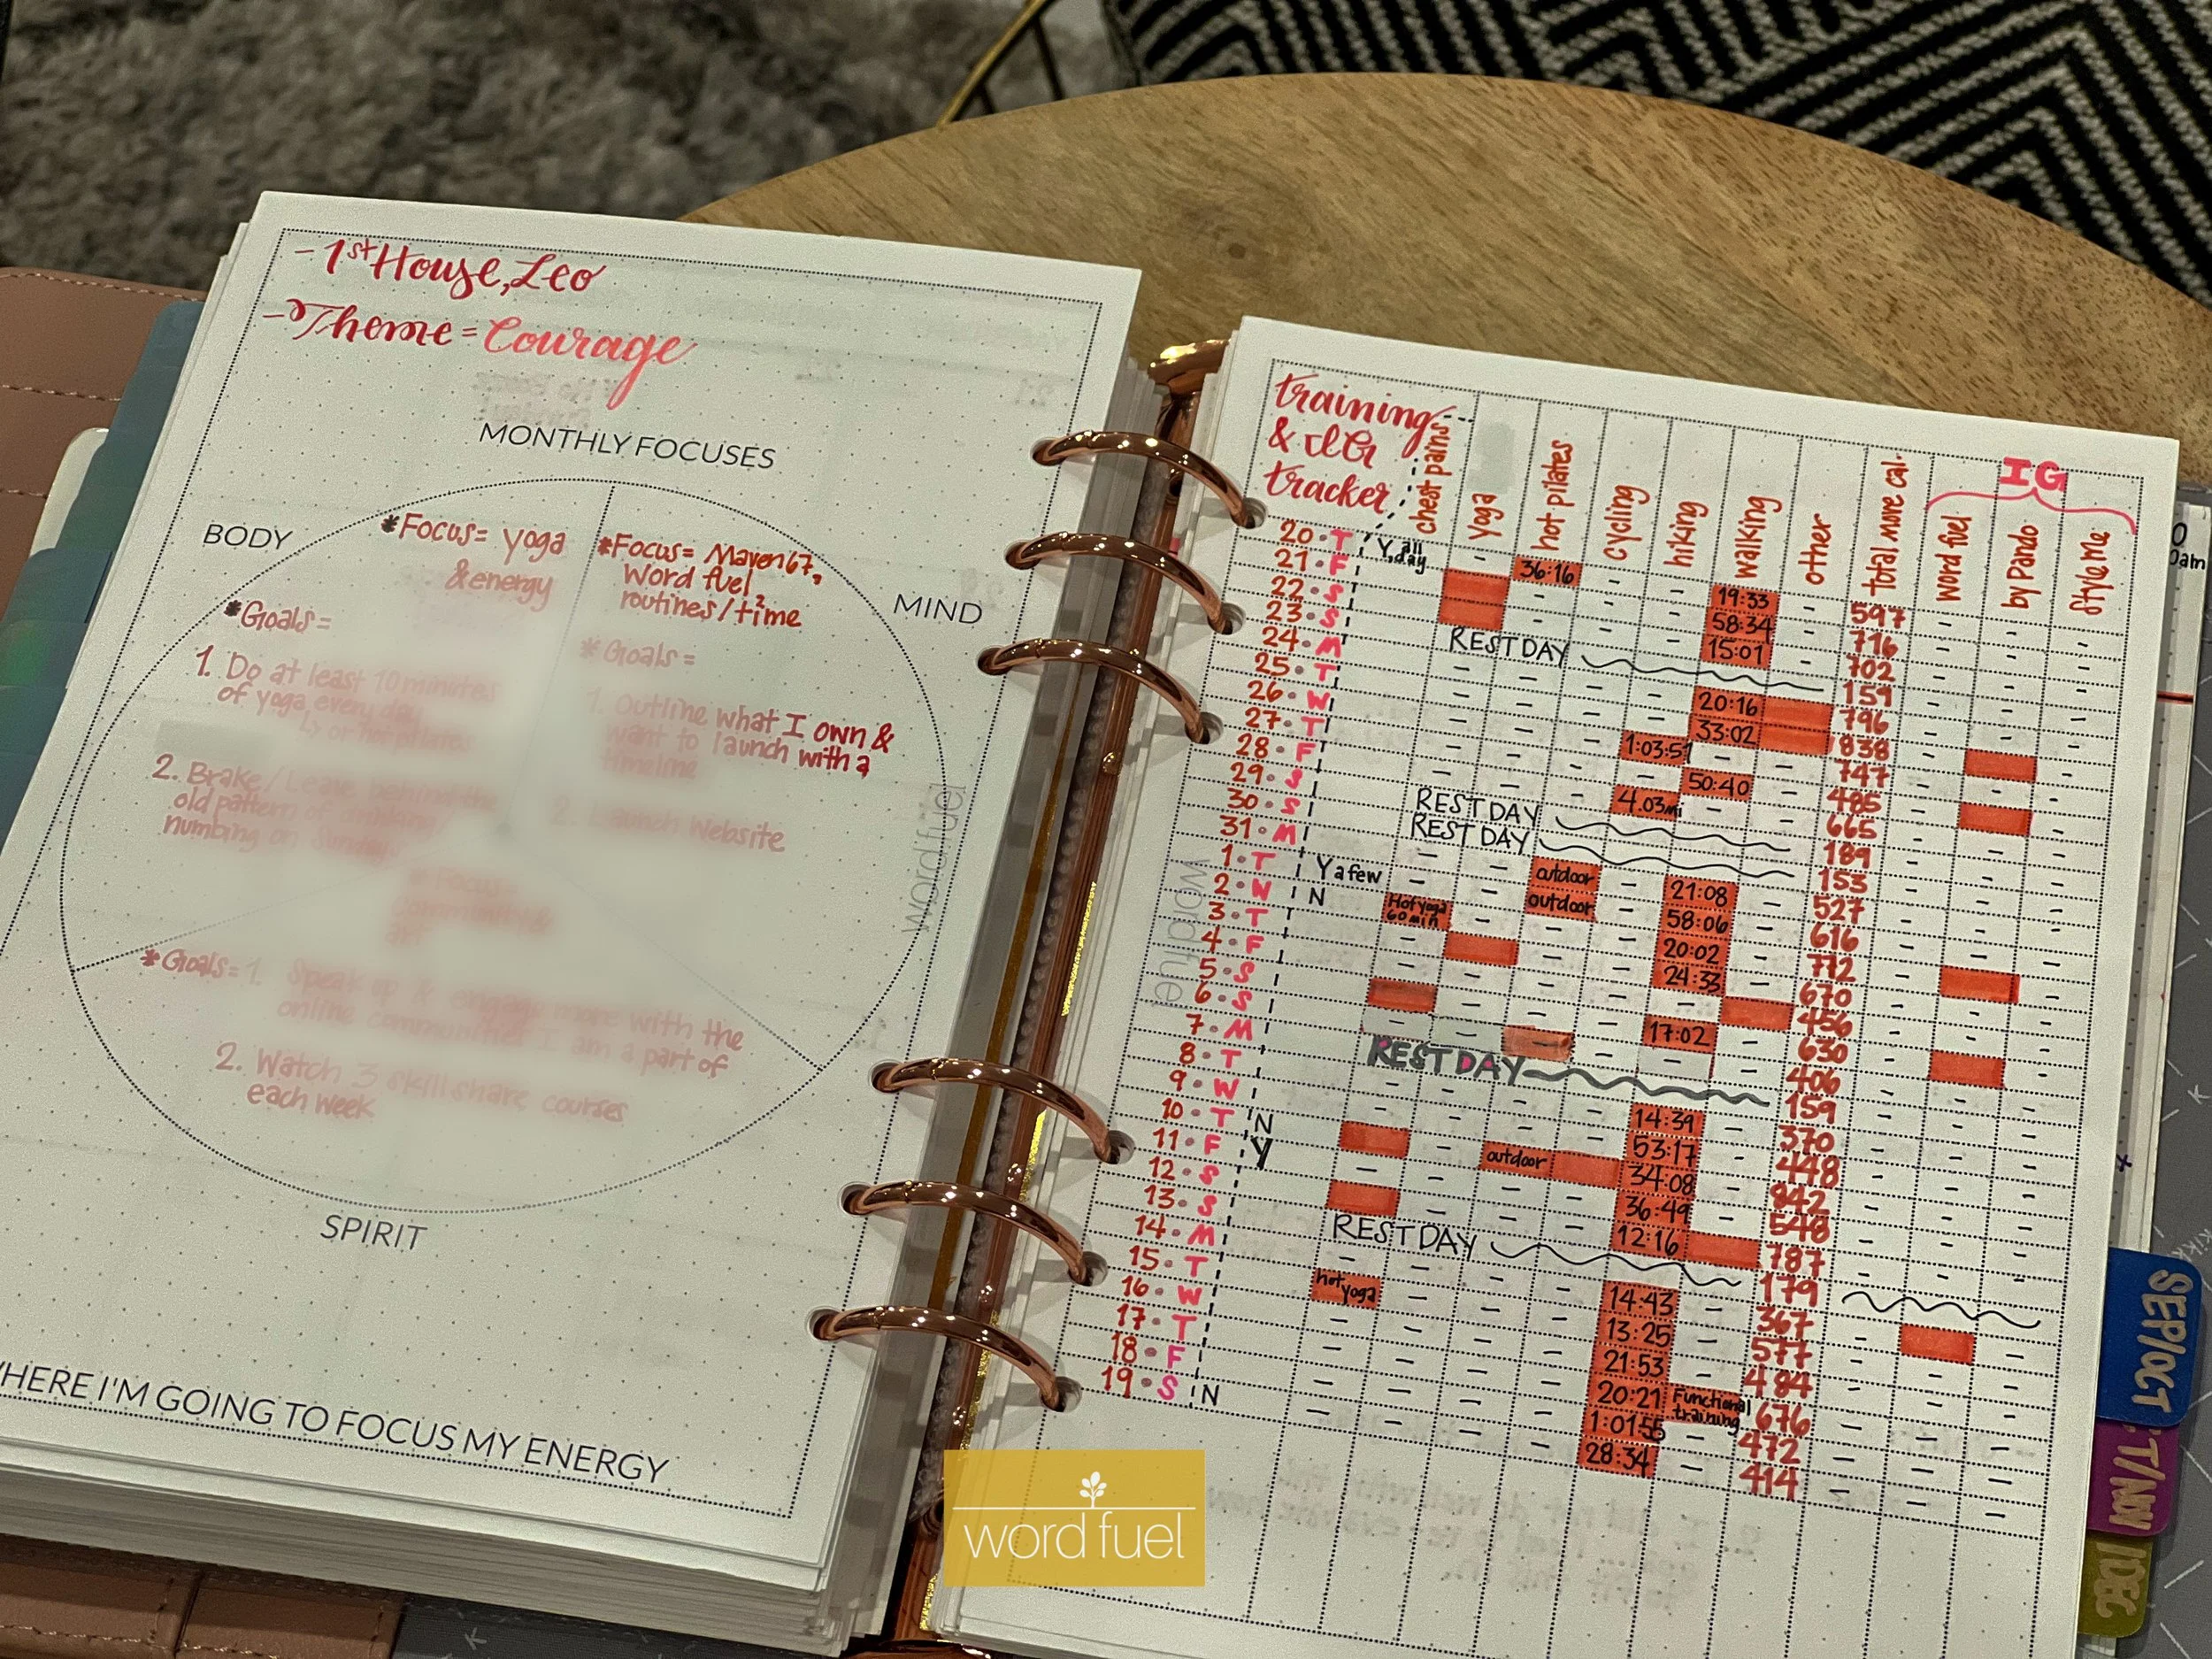 - 1st House, Leo
- Theme = Courage
MONTHLY FOCUSES
BODY
*Focus= yoga
& energy
*Goals=
1. Do at least 10 minutes
of yoga every day
↳ or hot pilates
2. Brake / Leave behind the
old pattern of
numbing on Sunday
MIND
*Focus= Maven67,
Word fuel,
routines/time
*Goals=
1. Outline what I own &
want to launch with a
timeline
2. Launch Website
*Goals= 1. Speak up & engage more with the
online communities I am a part of
2. Watch 3 skillshare courses
each week
SPIRIT
WHERE I'M GOING TO FOCUS MY ENERGY
wordfuel
training
& IG
tracker
chest pains yoga hot pilates cycling hiking walking other total move cal. IG
word fuel by Pando Style Me
20 • T Y, all day 36:16 19:33 597
21 • F 58:34 716
22 • S 15:01 702
23 • S REST DAY 159
24 • M 20:16 796
25 • T 33:02 838
26 • W 1:03:51 747
27 • T 50:40 485
28 • F 4.03mi 665
29 • S REST DAY 189
30 • S REST DAY 153
31 • M outdoor 21:08 527
1 • T Y a few outdoor 58:06 616
2 • W N Hot yoga 60 min 20:02 772
3 • T 24:33 670
4 • F 456
5 • S 17:02 630
6 • S 406
7 • M REST DAY 159
8 • T 14:39 370
9 • W 53:17 448
10 • T N outdoor 34:08 842
11 • F Y 36:49 548
12 • S 12:16 787
13 • S REST DAY 179
14 • M 14:43 367
15 • T hot yoga 13:25 577
16 • W 21:53 484
17 • T 20:21 Functional training 676
18 • F 1:01:55 472
19 • S N 28:34 414
wordfuel
SEP/OCT
T/NOV
DEC
word fuel